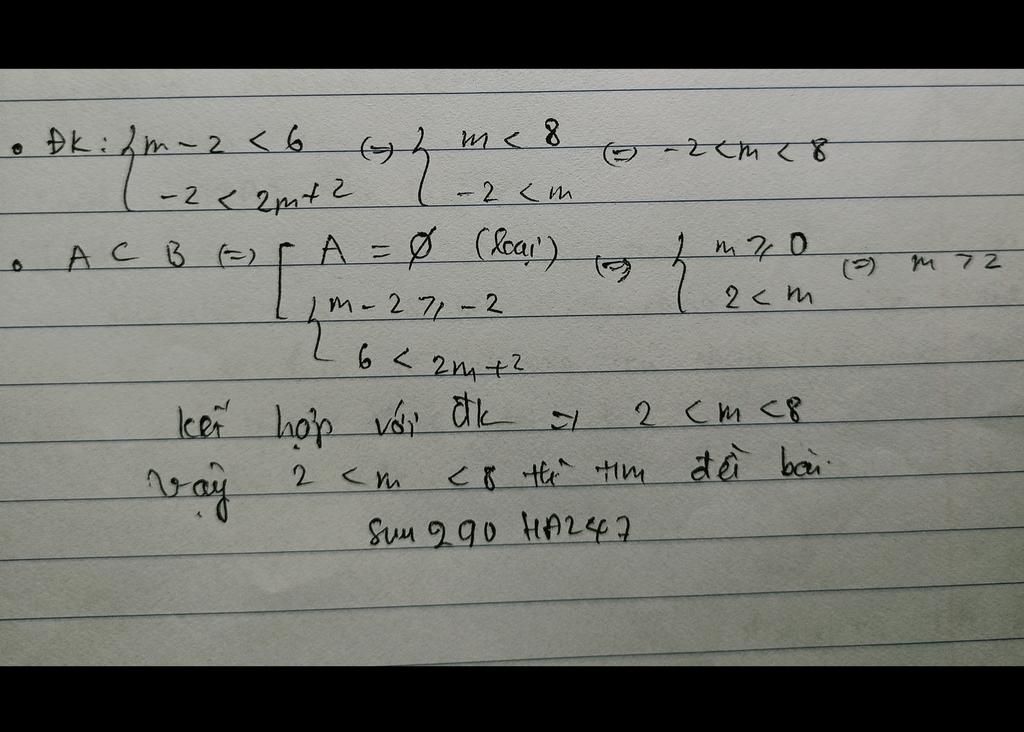 • ĐK: { m - 2 < 6 (=) { m < 8 (=) -2 < m < 8
-2 < 2m + 2 -2 < m
• A ⊂ B (=) [ A = ∅ (loại) (=) { m ⩾ 0 (=) m > 2
{ m - 2 ⩾ -2 2 < m
6 < 2m + 2
kết hợp với đk => 2 < m < 8
Vậy 2 < m < 8 thì t/m đề bài.
290 HA247